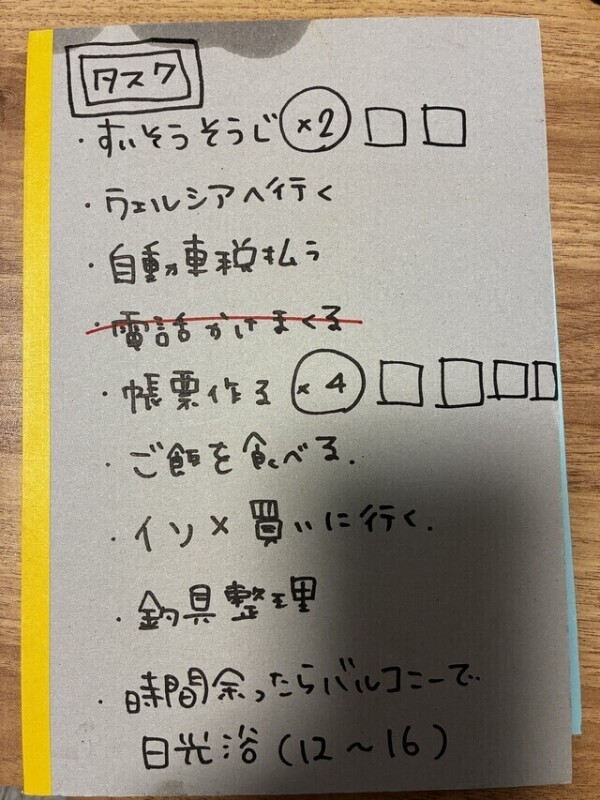 タスク
・すいそうそうじ ×2 □ □
・ウェルシアへ行く
・自動車税払う
・電話かけまくる
・帳票作る ×4 □ □ □ □
・ご飯を食べる.
・イソメ買いに行く.
・釣具整理
・時間余ったらバルコニーで
日光浴(12〜16)